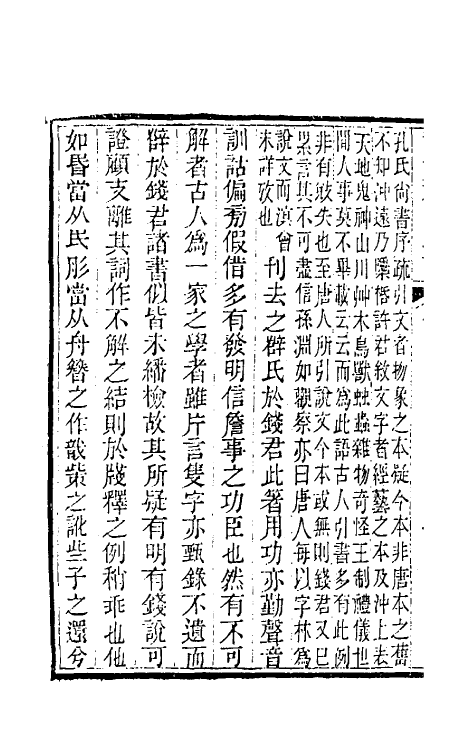 孔氏尚書序疏引文者物象之本疑今本非唐本之舊
不知沖遠乃櫽栝許君敘文字者經藝之本及沖上表
天地鬼神山川艸木鳥獸䖵蟲雜物奇怪王制禮儀世
間人事莫不畢載云云而爲此語古人引書多有此例
非有敚失也至唐人所引說文今本或無則錢君又已
累言其不可盡信孫淵如觀察亦曰唐人每以字林爲
說文而滇曾
未詳攷也
刊去之辥氏於錢君此著用功亦勤聲音
訓詁偏㫄假借多有發明信詹事之功臣也然有不可
解者古人爲一家之學者雖片言隻字亦甄錄不遺而
辥於錢君諸書似皆未繙檢故其所疑有明有錢說可
證顧支離其詞作不解之結則於牋釋之例稍乖也他
如昏當从民彤當从舟簪之作㪇祡之訛些子之還兮